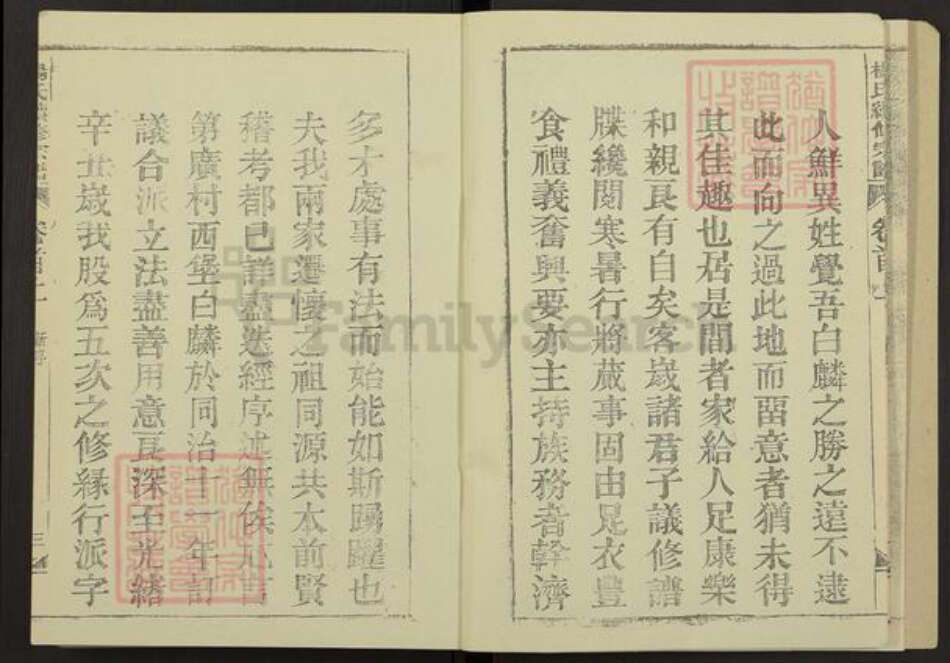 人鮮異姓覺吾白麟之勝之遠不逮
此而向之過此地而畱意者猶未得
其佳趣也居是間者家給人足康樂
和親良有白矣客嵗諸君子議修譜
牒纔閱寒暑行將蕆事固由足衣豊
食禮義奮興要亦主持族務者幹濟
多才處事有法而始能如斯踴躍也
夫我兩家遷懷之祖同源共本前賢
稽考都已詳盡迭經序述無俟
第廣村西堡白麟於同治十一年訂
議合派立法盡善用意良深至光緒
辛丑嵗我股爲五次之修緣行派字
楊氏續修宗譜 卷首一
三
FamilySearch